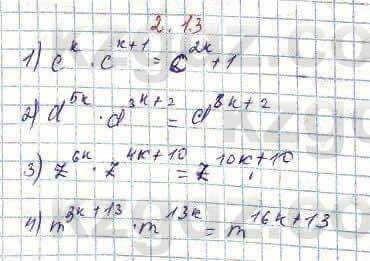 2.13
1) c^k · c^{k+1} = c^{2k+1}
2) d^{5k} · d^{3k+2} = d^{8k+2}
3) z^{6k} · z^{4k+10} = z^{10k+10}
4) m^{3k+13} · m^{13k} = m^{16k+13}